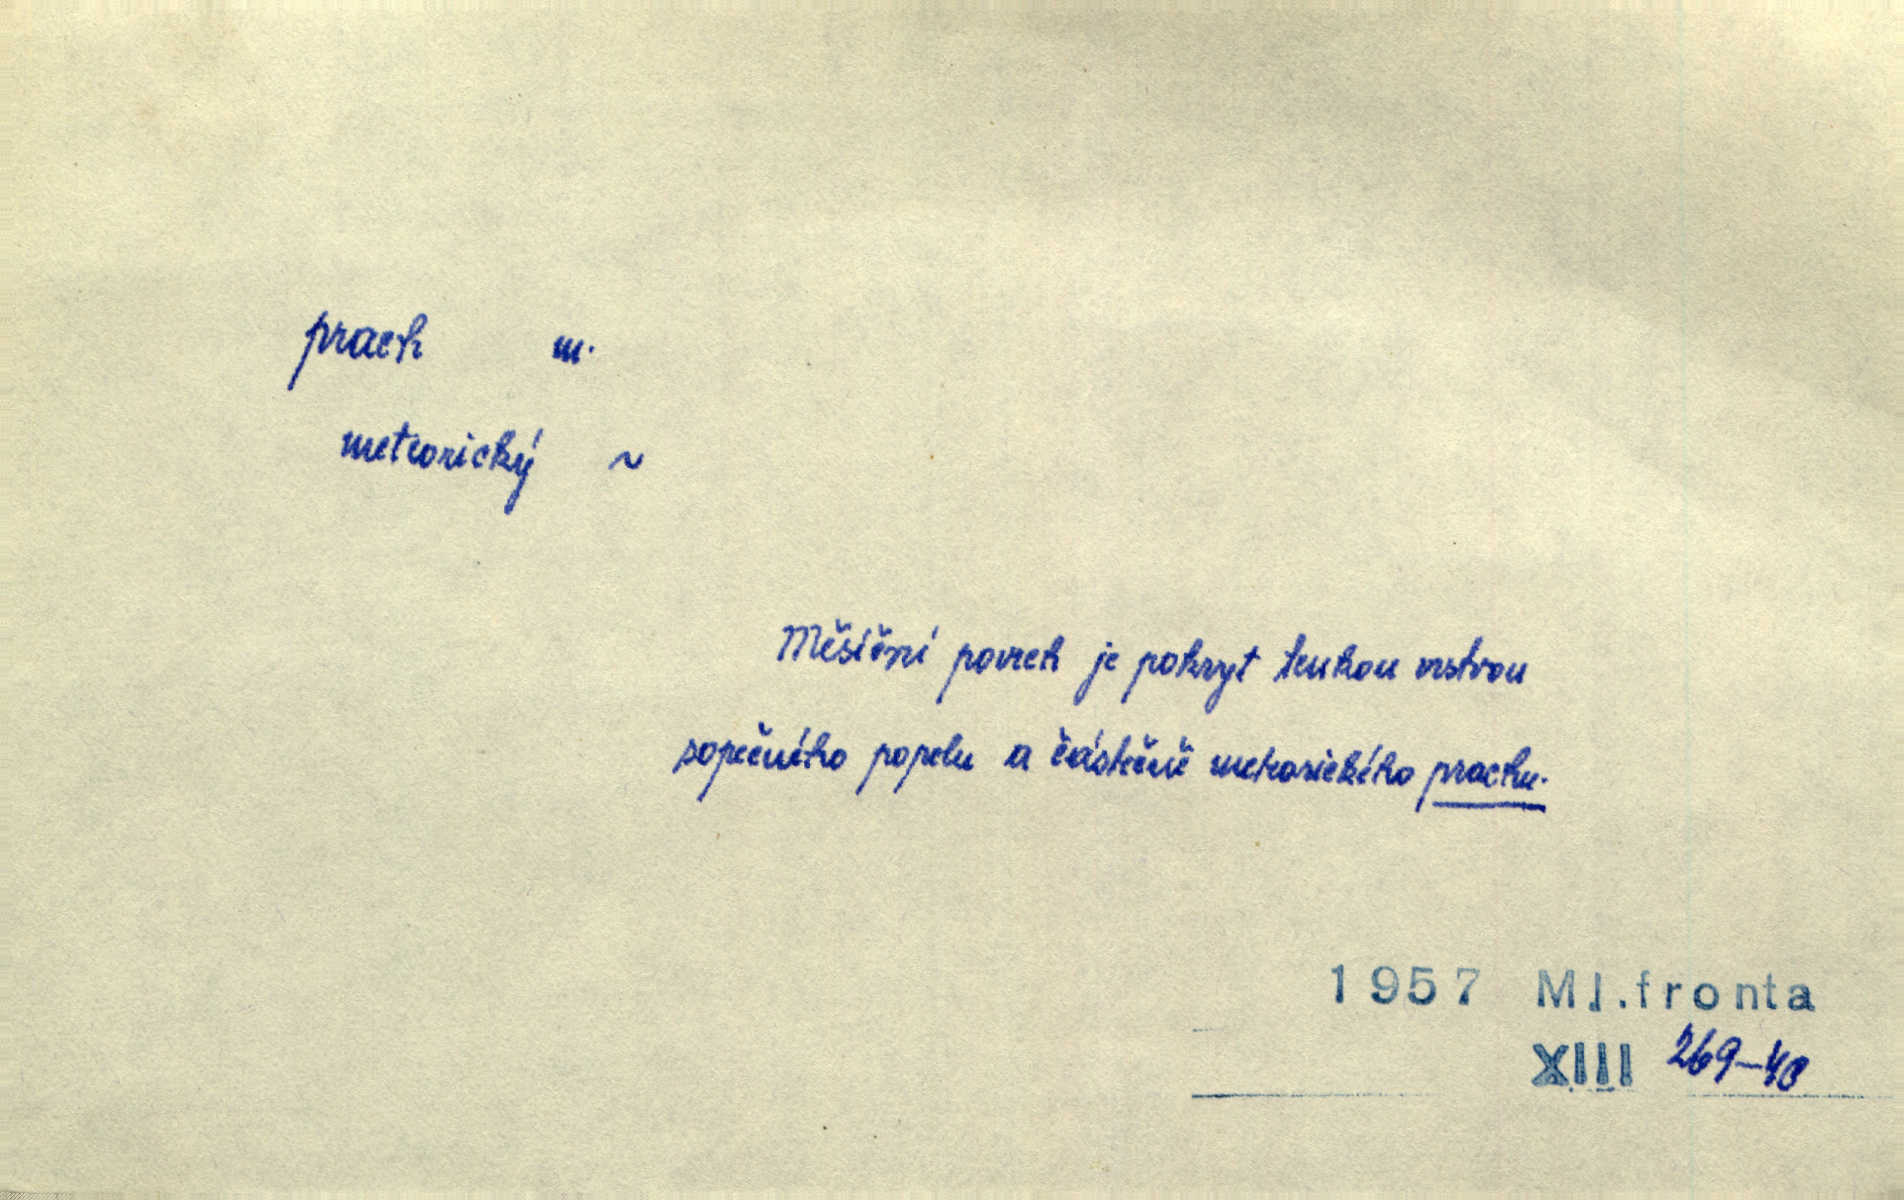 prach m.
meteorický ~
Měsíční povrch je pokryt tenkou vrstvou
sopečného popelu a částečně meteorického prachu.
1957 Ml.fronta
XIII 269-40